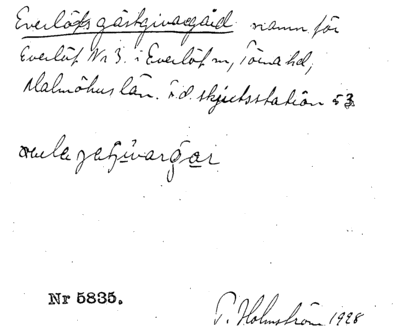 Everlöfs gästgivaregård namn för
Everlöf Nr 3. i Everlöf sn, Torna hd,
Malmöhus län. F.d. skjutsstation 53
Nr 5835. T. Holmström 1928